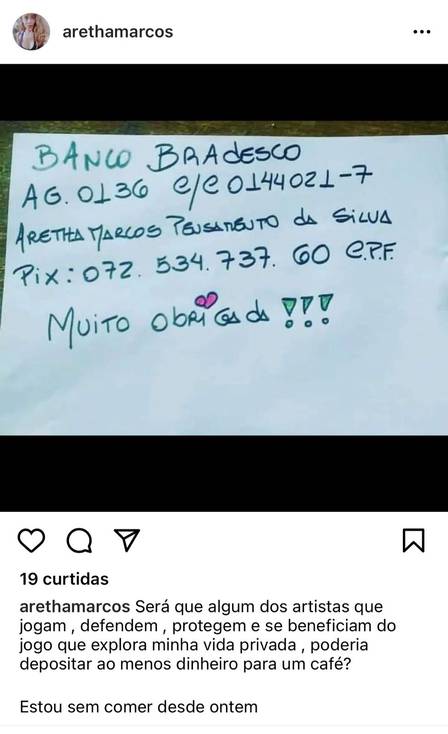 arethamarcos
BANCO BRADESCO
AG. 0136 C/C 0144021-7
ARETHA MARCOS PENSAMENTO DA SILVA
Pix: 072. 534. 737. 60 C.P.F.
MUITO OBRIGADA !!!
19 curtidas
arethamarcos Será que algum dos artistas que
jogam , defendem , protegem e se beneficiam do
jogo que explora minha vida privada , poderia
depositar ao menos dinheiro para um café?
Estou sem comer desde ontem